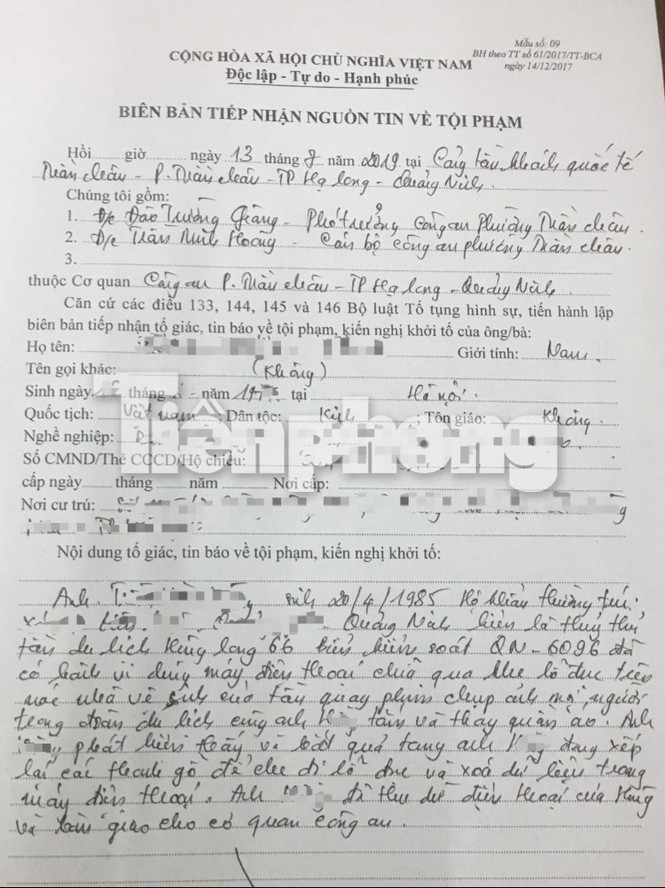 Mẫu số: 09
BH theo TT số 61/2017/TT-BCA
ngày 14/12/2017
CỘNG HÒA XÃ HỘI CHỦ NGHĨA VIỆT NAM
Độc lập - Tự do - Hạnh phúc
BIÊN BẢN TIẾP NHẬN NGUỒN TIN VỀ TỘI PHẠM
Hồi giờ ngày 13 tháng 8 năm 2019 tại Cảng tàu khách quốc tế
P. - TP Hạ Long - Quảng Ninh.
Chúng tôi gồm:
1. Đ/c Đào Trường Giang - Phó trưởng Công an Phường
2. Đ/c Trần Minh Hoàng - Cán bộ công an phường
3.
thuộc Cơ quan Công an P. - TP Hạ Long - Quảng Ninh
Căn cứ các điều 133, 144, 145 và 146 Bộ luật Tố tụng hình sự, tiến hành lập
biên bản tiếp nhận tố giác, tin báo về tội phạm, kiến nghị khởi tố của ông/bà:
Họ tên: Giới tính: Nam.
Tên gọi khác: (Không)
Sinh ngày tháng năm tại Hà Nội.
Quốc tịch: Việt nam; Dân tộc: Kinh; Tôn giáo: Không
Nghề nghiệp:
Số CMND/Thẻ CCCD/Hộ chiếu:
cấp ngày tháng năm Nơi cấp:
Nơi cư trú:
Tiền phong
Nội dung tố giác, tin báo về tội phạm, kiến nghị khởi tố:
Anh sinh 20/4/1985 Hộ khẩu thường trú:
Quảng Ninh hiện là thủy thủ
tàu du lịch Hùng Long 66 biển kiểm soát QN-6096 đã
có hành vi dùng máy điện thoại chĩa qua khe lỗ đục trên
nhà vệ sinh của tàu quay phim chụp ảnh người
trong đoàn du lịch cùng anh tắm và thay quần áo. Anh
phát hiện thấy và bắt quả tang anh đang xếp
lại các thanh gỗ để che đi lỗ đục và xoá dữ liệu trong
máy điện thoại. Anh đã thu giữ điện thoại của
và bàn giao cho cơ quan công an.